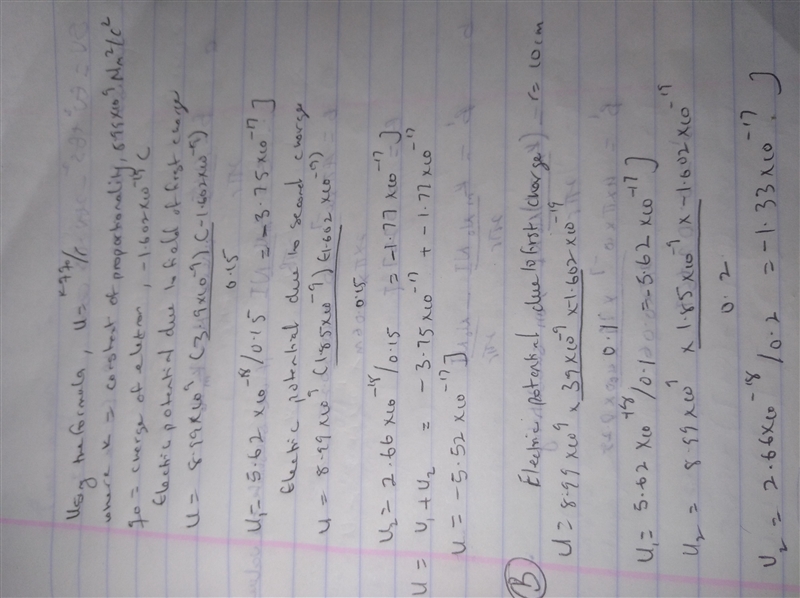 Using the formula, U = kqq/r
where k = constant of proportionality, 8.99x10⁹ Nm²/C²
q0 = charge of eletron, -1.602x10⁻¹⁹ C
Electric potential due to field of first charge
U = 8.99x10⁹ (3.9x10⁻⁹) (-1.602x10⁻⁹)
0.15
U₁ = 5.62 x10⁻¹⁸/0.15 = -3.75x10⁻⁷ J
Electric potential due to second charge
U = 8.99x10⁹ (1.85x10⁻⁹) (1.602x10⁻⁹)
0.15
U₂ = 2.66x10⁻¹⁸/0.15 = -1.77x10⁻¹⁷ J
U = U₁ + U₂ = -3.75x10⁻¹⁷ + -1.77x10⁻¹⁷
U = -5.52 x10⁻¹⁷ J
(B) Electric potential due to first (charge) - r = 10cm
U = 8.99x10⁹ x 39x10⁻⁹ x -1.602x10⁻¹⁹
0.1
U₁ = 5.62 x10⁻¹⁸ /0.1 = -5.62 x10⁻¹⁷ J
U₂ = 8.99 x10⁹ x 1.85x10⁻⁹ x -1.602 x10⁻¹⁹
0.2
U₂ = 2.66x10⁻¹⁸ /0.2 = -1.33x10⁻¹⁷ J